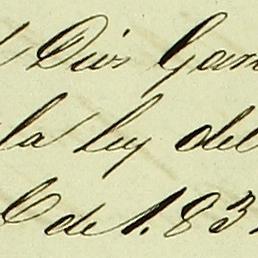 Dios Gar
la ley del
de 1.83